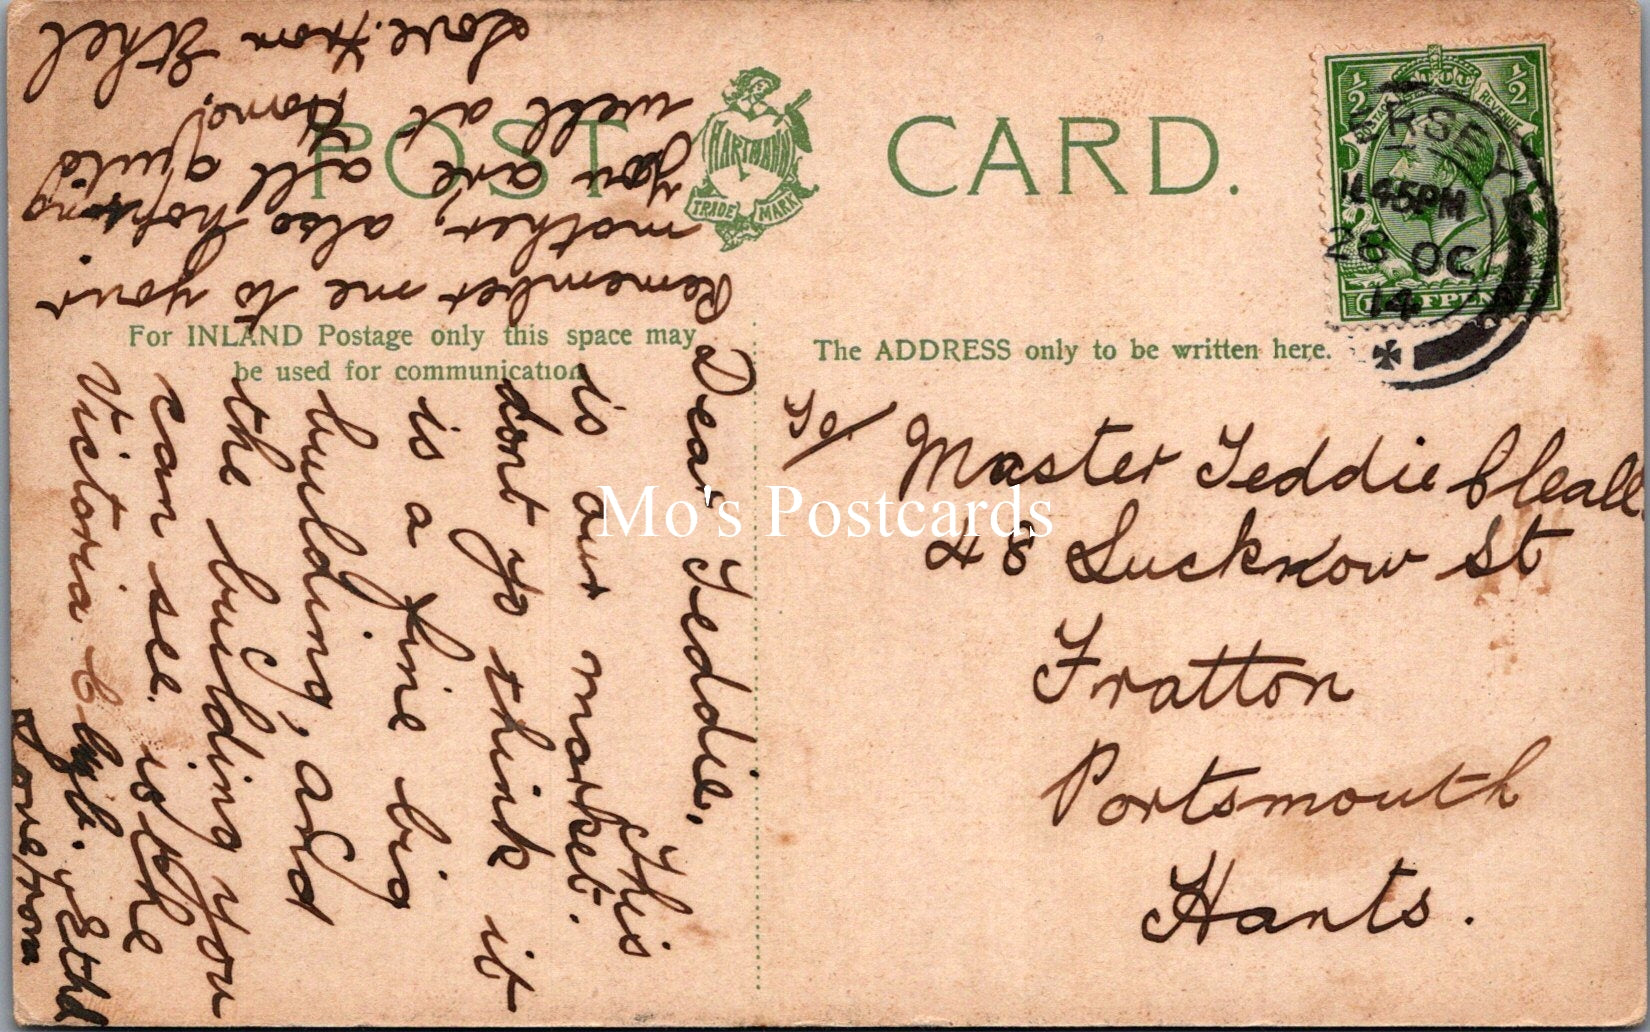 POST CARD.
HARTMANN
TRADE MARK
For INLAND Postage only this space may
be used for communication
The ADDRESS only to be written here.
½ ½
POSTAGE REVENUE
HALFPENNY
JERSEY
11 45PM
28 OC
14
To/
Master Teddie Cleall
48 Lucknow St
Fratton
Portsmouth
Hants.
Dear Teddie,
This
is our market.
dont yo think it
is a fine big
building, and
the building you
can see is the
Victoria Club.
Love from
Ethel
Remember me to your
mother, also hopping
you are all quite
well at Home,
Love. from Ethel
Mo's Postcards